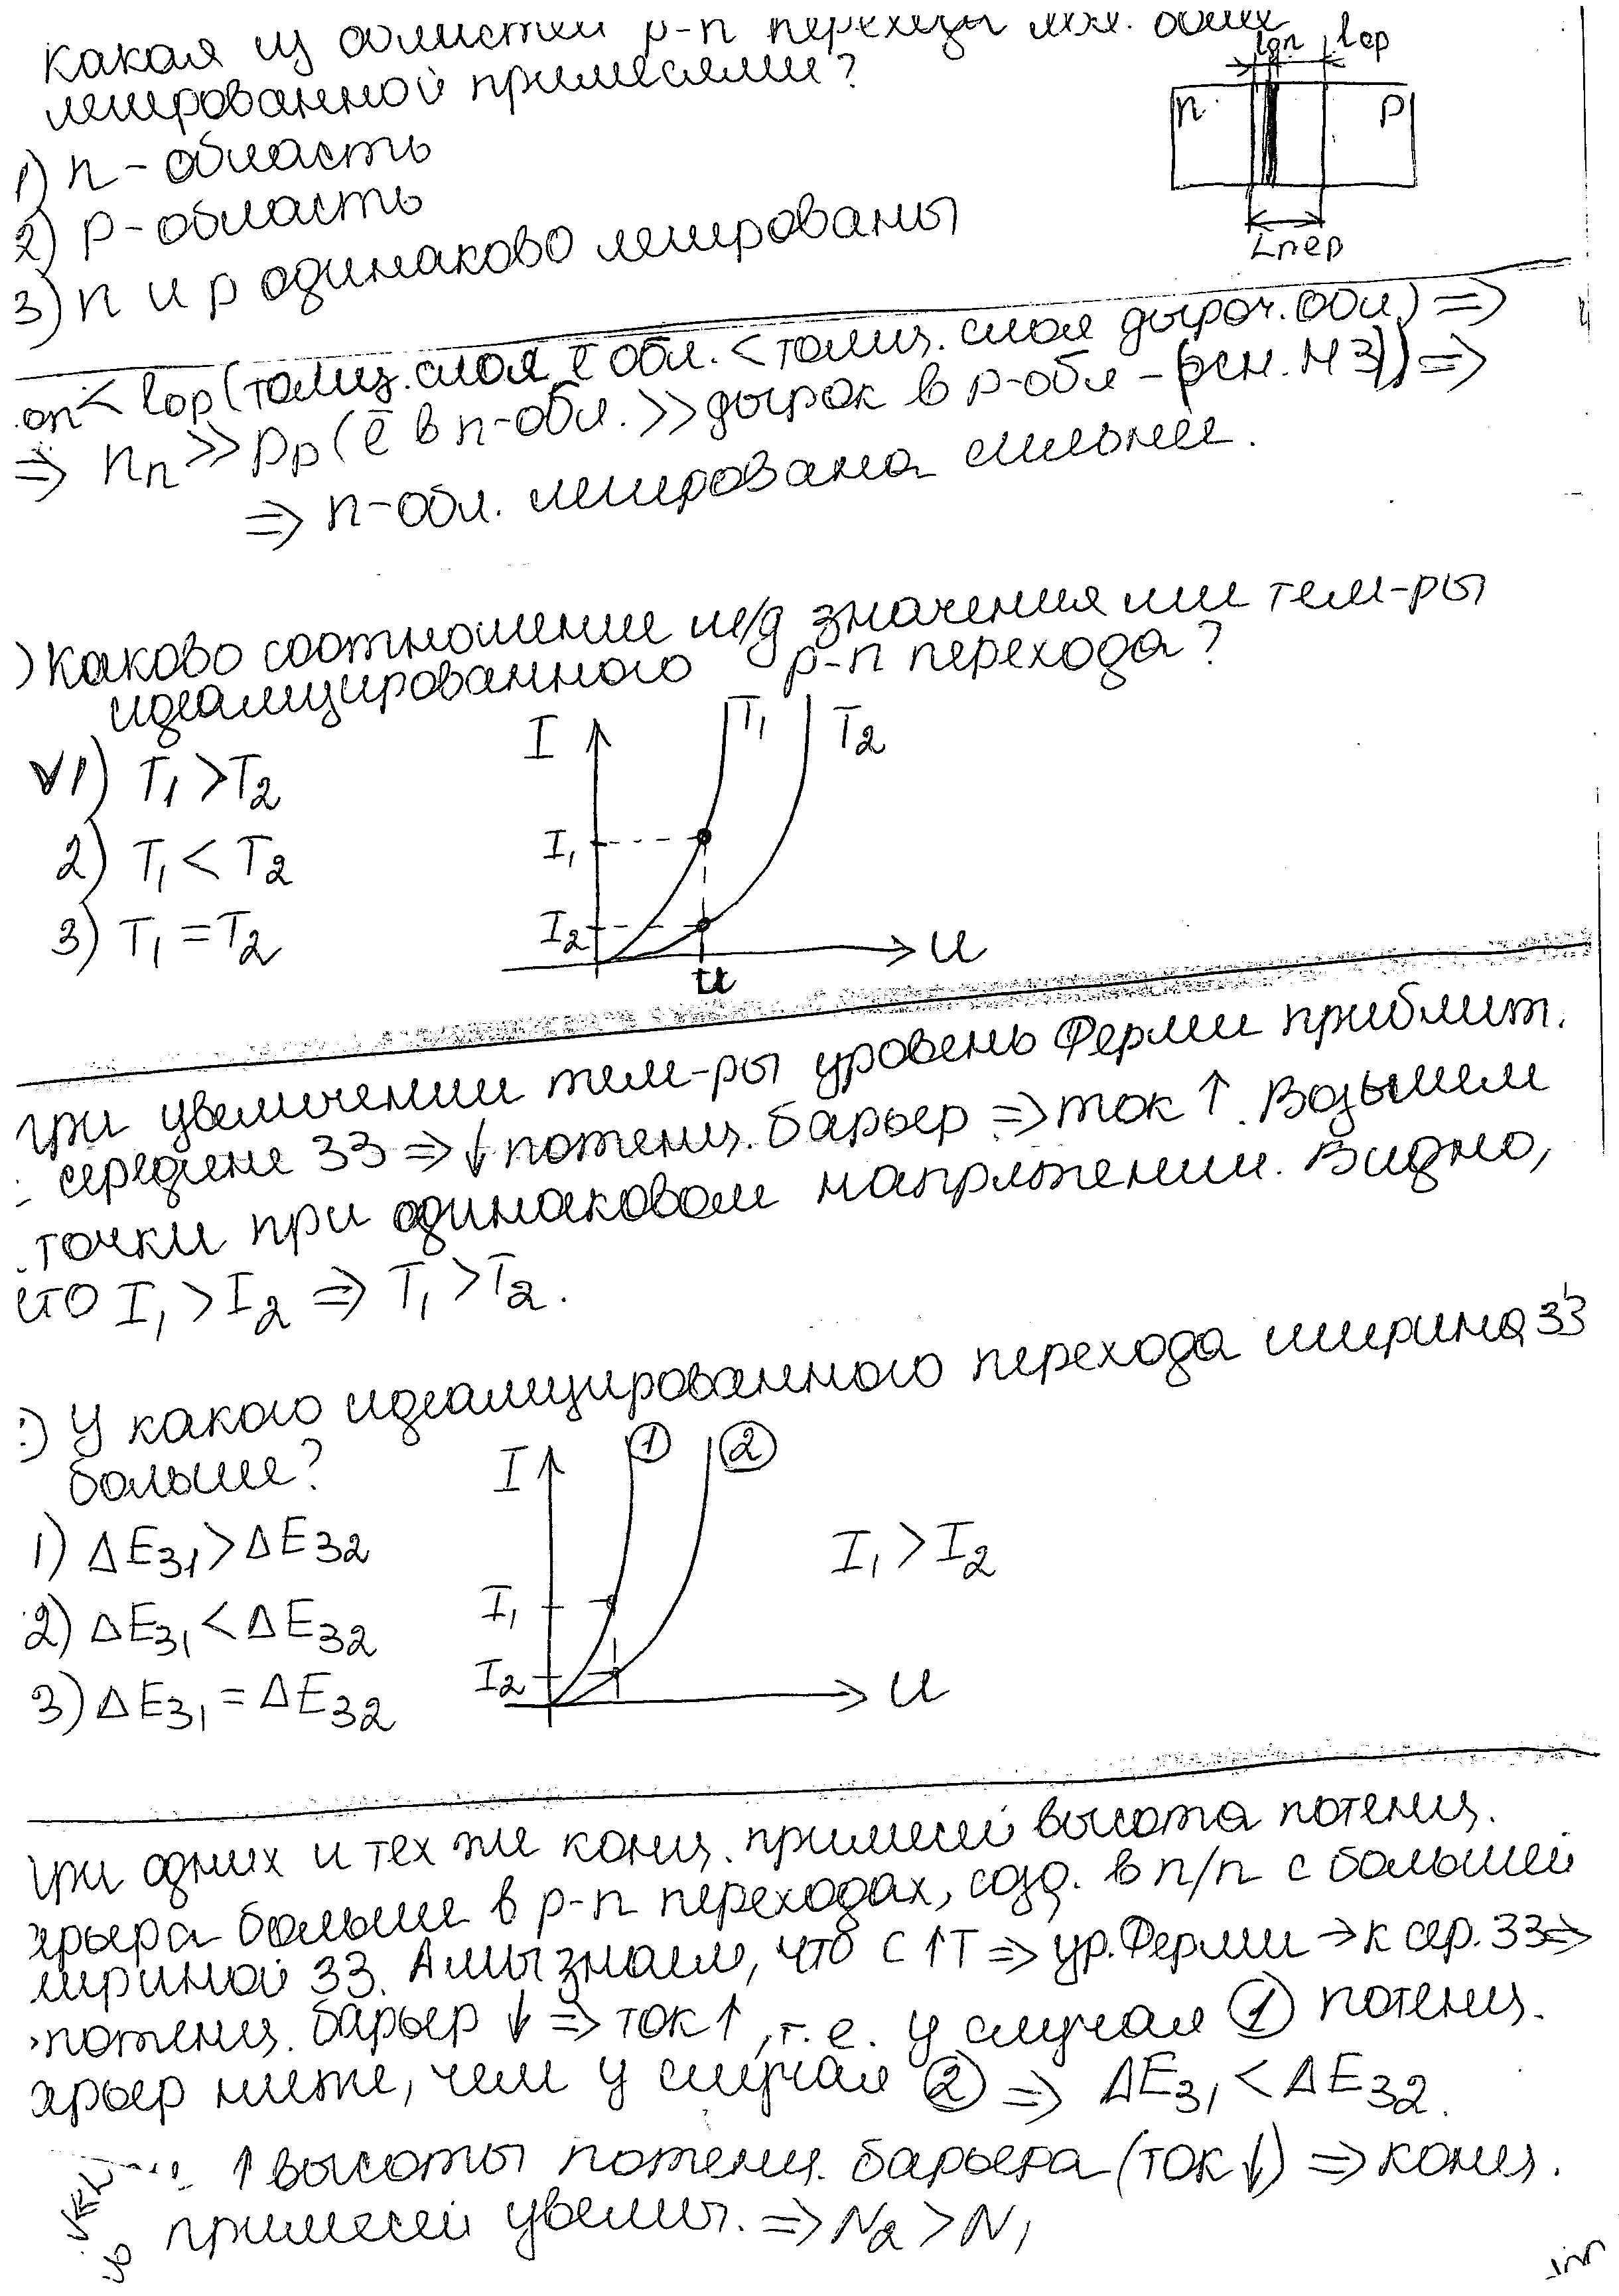 Какая из областей p-n перехода явл. более
легированной примесями?
lоп lор
n p
Lпер
1) n-область
2) p-область
3) n и p одинаково легированы
оп < lор (толщ. слоя ē обл. < толщ. слоя дыроч. обл.) ⇒
⇒ nn >> pp (ē в n-обл. >> дырок в p-обл - (осн. НЗ)) ⇒
⇒ n-обл. легирована сильнее.
) Каково соотношение м/д значениями тем-ры
идеализированного p-n перехода?
I T1 T2
V1) T1 > T2
2) T1 < T2
3) T1 = T2
I1
I2
U
U
при увеличении тем-ры уровень Ферми приближ.
середине ЗЗ ⇒ ↓ потенц. барьер ⇒ ток ↑. Возьмем
точки при одинаковом напряжении. Видно,
что I1 > I2 ⇒ T1 > T2.
:) У какого идеализированного перехода ширина ЗЗ
больше?
I ① ②
1) ΔEз1 > ΔEз2
I1 > I2
2) ΔEз1 < ΔEз2
3) ΔEз1 = ΔEз2
I1
I2
U
при одних и тех же конц. примесей высота потенц.
арьера больше в p-n переходах, созд. в п/п с большей
шириной ЗЗ. А мы знаем, что с ↑T ⇒ ур. Ферми → к сер. ЗЗ ⇒
потенц. барьер ↓ ⇒ ток ↑, т.е. у случая ① потенц.
арьер ниже, чем у случая ② ⇒ ΔEз1 < ΔEз2.
↑ высоты потенц. барьера (ток ↓) ⇒ конц.
примесей увелич. ⇒ N2 > N1